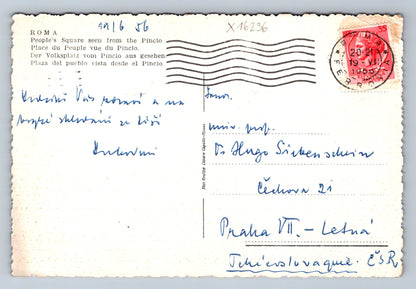 19/6 56
X16236
ROMA
People's Square seen from the Pincio
Place du Peuple vue du Pincio.
Der Volksplatz vom Pincio aus gesehen
Plaza del pueblo vista desde el Pincio
ROMA
20-21
19-VI
1956
FERROVIA
35
Srdečně Vás zdraví a na
brzké shledání se těší
univ. prof.
Dr Hugo Siebenschein
Čechova 21
Praha VII. - Letná
Tchécoslovaquie. ČSR